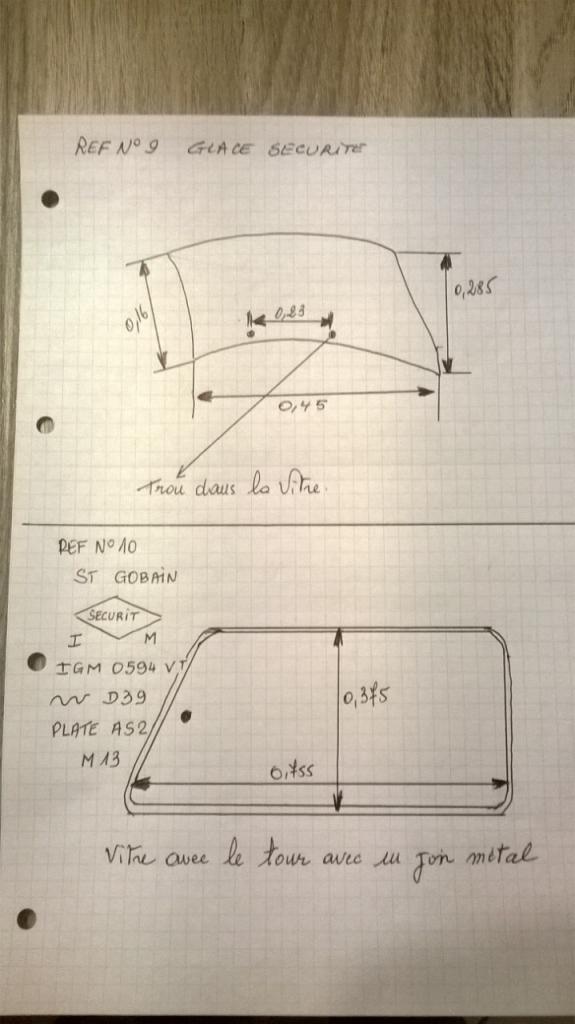 REF N° 9 GLACE SECURITE
0,16
0,23
0,285
0,45
Trou dans la Vitre.
REF N° 10
ST GOBAIN
SECURIT
I M
IGM 0594 VT
D39
PLATE AS2
M 13
0,375
0,755
Vitre avec le tour avec un join métal